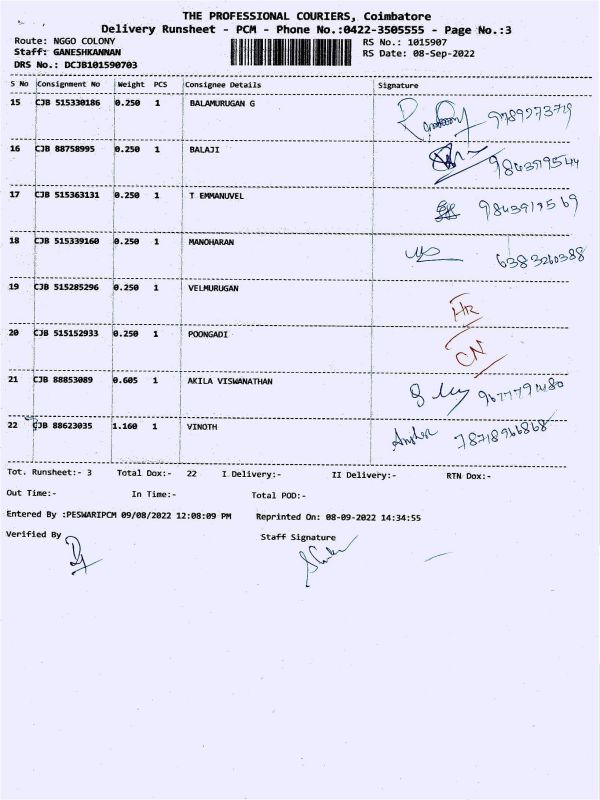 THE PROFESSIONAL COURIERS, Coimbatore
Delivery Runsheet - PCM - Phone No.:0422-3505555 - Page No.:3
Route: NGGO COLONY RS No.: 1015907
Staff: GANESHKANNAN RS Date: 08-Sep-2022
DRS No.: DCJB101590703
S No Consignment No Weight PCS Consignee Details Signature
15 CJB 515330186 0.250 1 BALAMURUGAN G
16 CJB 88758995 0.250 1 BALAJI
17 CJB 515363131 0.250 1 T EMMANUVEL 9843919569
18 CJB 515339160 0.250 1 MANOHARAN 6383260388
19 CJB 515285296 0.250 1 VELMURUGAN HR
20 CJB 515152933 0.250 1 POONGADI CN
21 CJB 88853089 0.605 1 AKILA VISWANATHAN
22 CJB 88623035 1.160 1 VINOTH
Tot. Runsheet:- 3 Total Dox:- 22 I Delivery:- II Delivery:- RTN Dox:-
Out Time:- In Time:- Total POD:-
Entered By :PESWARIPCM 09/08/2022 12:08:09 PM Reprinted On: 08-09-2022 14:34:55
Verified By Staff Signature